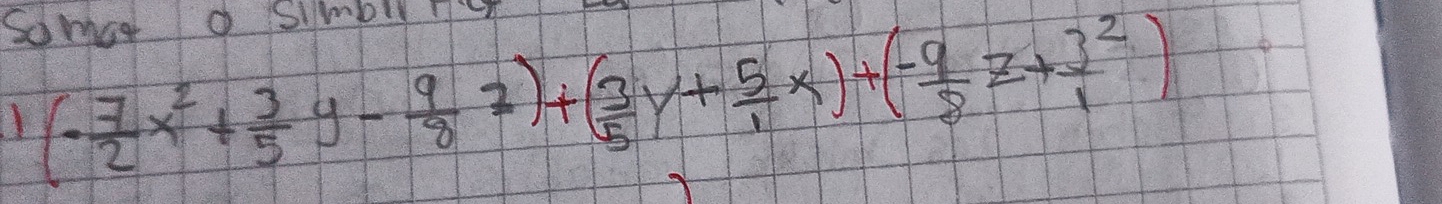 Somar o
1) (-7/2 x² + 3/5 y - 9/8 z) + (3/5 y + 5/1 x) + (-9/8 z + 3/1 ²)